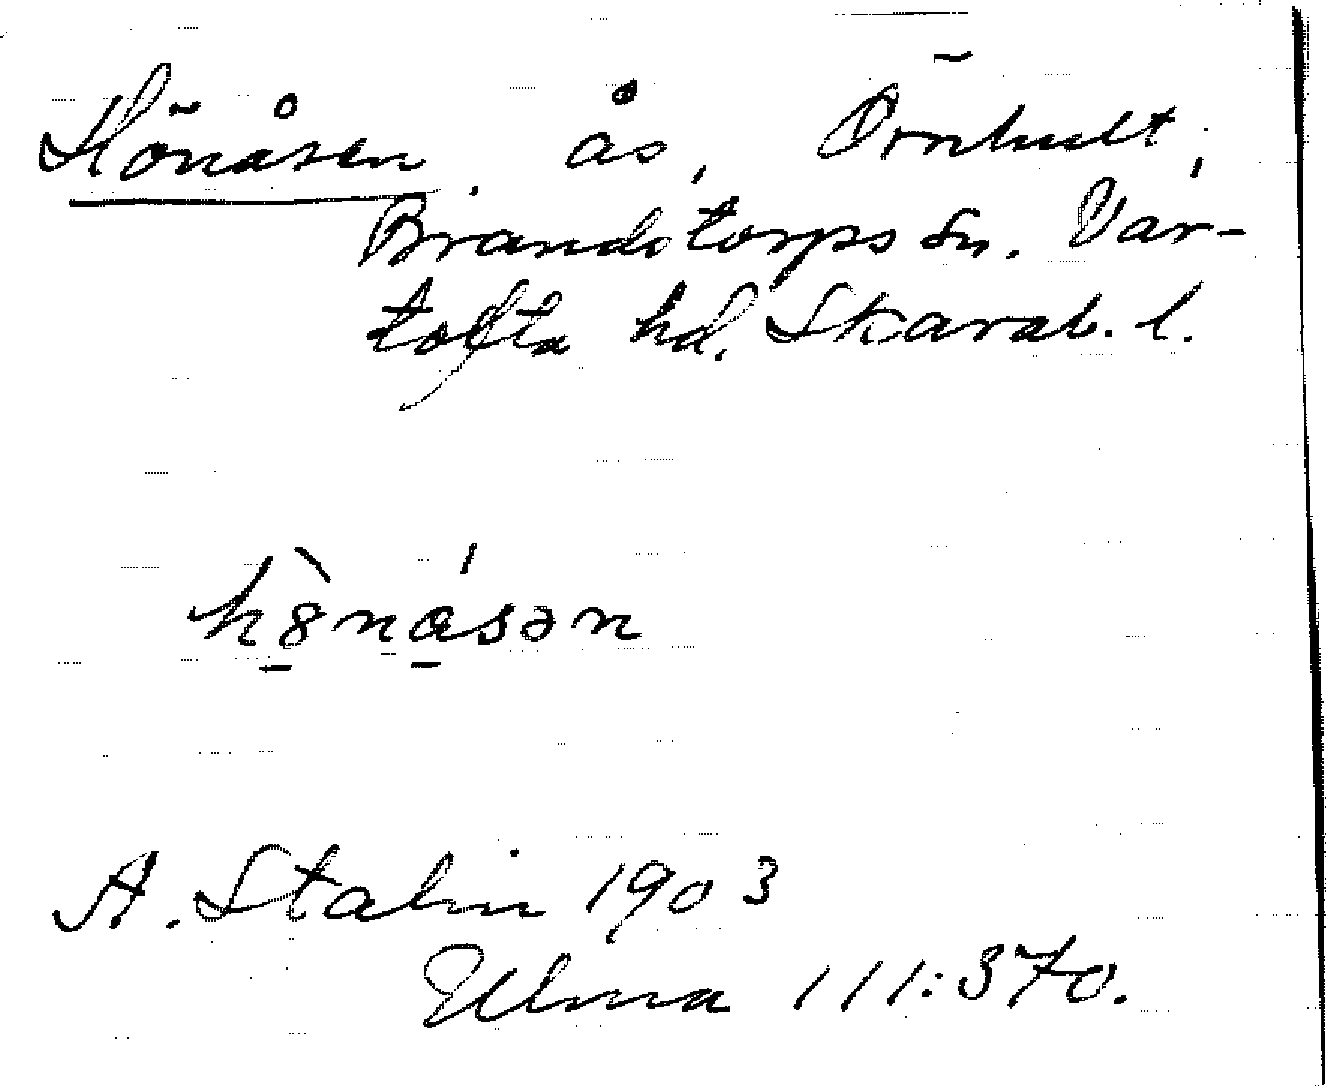 Hönåsen. ås, Örnhult,
Brandstorps sn. Var-
tofta hd. Skarab. l.
hö̀nåsən
A. Stalin 1903
Ulma 111:370.